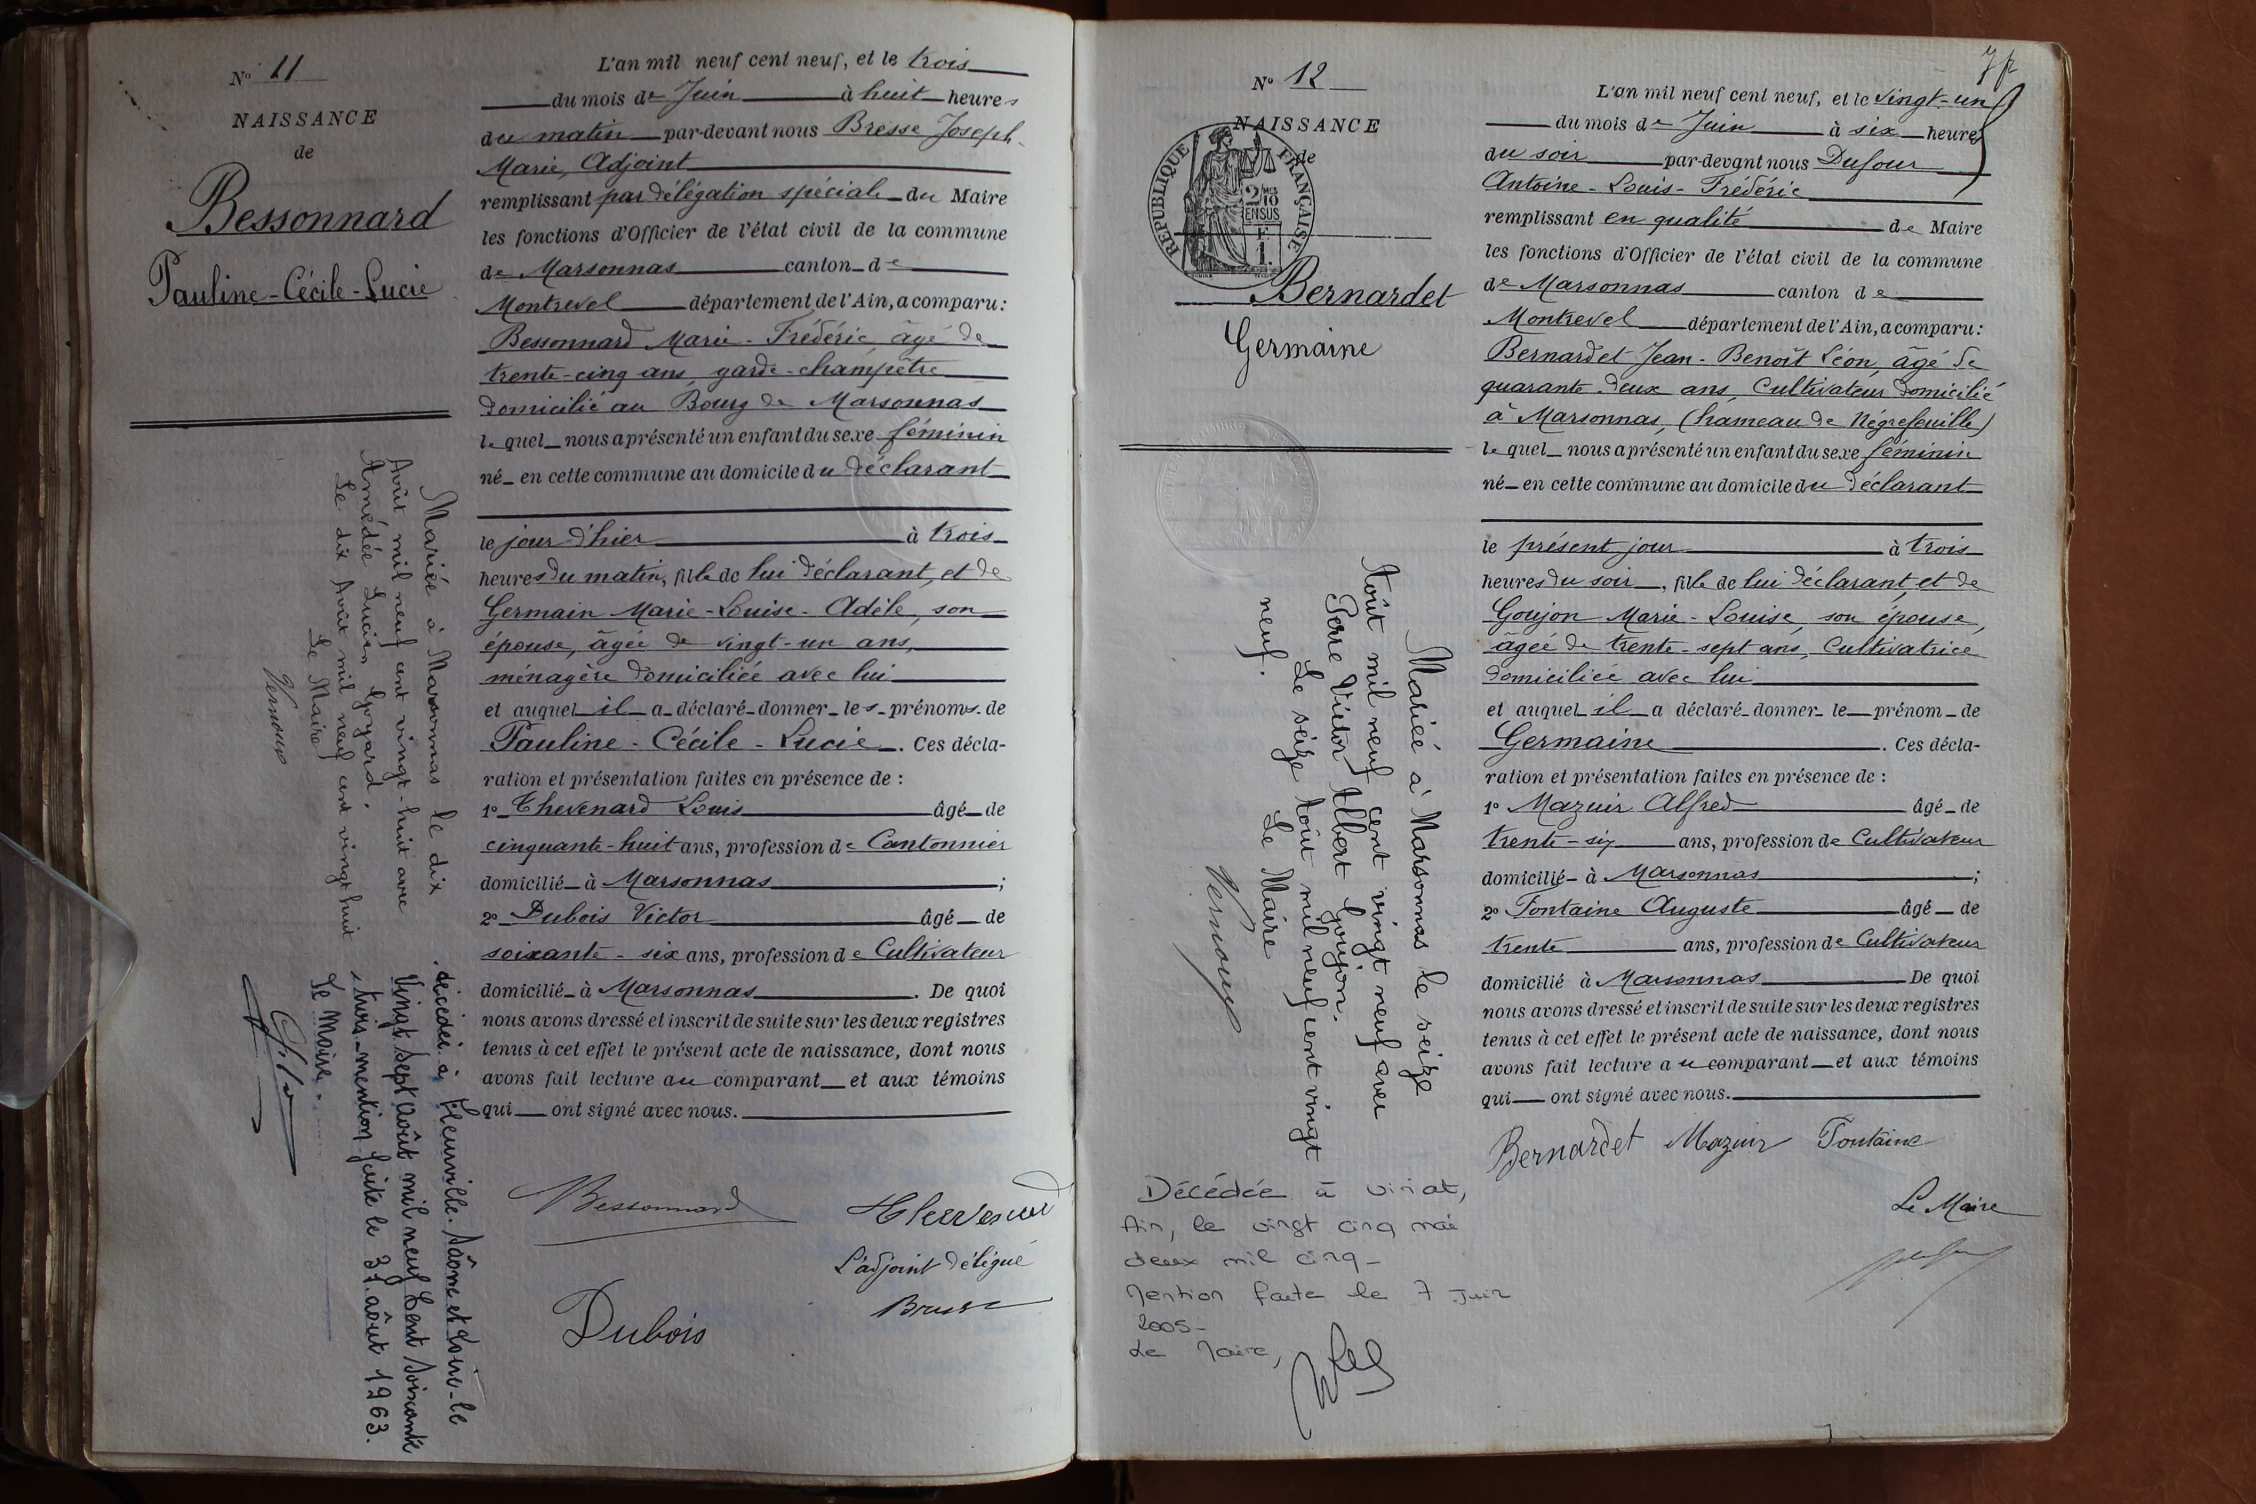 N° 11
NAISSANCE
de
Bessonnard
Pauline-Cécile-Lucie
L'an mil neuf cent neuf, et le trois
du mois de Juin à huit heures
du matin par-devant nous Bresse Joseph-
Marie, Adjoint
remplissant par délégation spéciale du Maire
les fonctions d'Officier de l'état civil de la commune
de Marsonnas canton de
Montrevel département de l'Ain, a comparu:
Bessonnard Marie-Frédéric, âgé de
trente-cinq ans, garde-champêtre
domicilié au Bourg de Marsonnas
lequel nous a présenté un enfant du sexe féminin
né en cette commune au domicile du déclarant
le jour d'hier à trois
heures du matin, fille de lui déclarant, et de
Germain Marie-Louise-Adèle, son
épouse, âgée de vingt-un ans,
ménagère domiciliée avec lui
et auquel il a déclaré donner les prénoms de
Pauline-Cécile-Lucie. Ces décla-
ration et présentation faites en présence de :
1° Thevenard Louis âgé de
cinquante-huit ans, profession de Cantonnier
domicilié à Marsonnas ;
2° Dubois Victor âgé de
soixante-six ans, profession de Cultivateur
domicilié à Marsonnas. De quoi
nous avons dressé et inscrit de suite sur les deux registres
tenus à cet effet le présent acte de naissance, dont nous
avons fait lecture au comparant et aux témoins
qui ont signé avec nous.
Bessonnard Thevenard
L'adjoint délégué
Dubois Bresse
Mariée à Marsonnas le dix
Août mil neuf cent vingt-huit avec
Amédée Lucien Goyard.
Le dix Août mil neuf cent vingt huit
Le Maire
décédée à Fleurville. Saône et Loire-le
vingt sept août mil neuf cent soixante
trois-mention faite le 31 août 1963.
Le Maire.
N° 12
NAISSANCE
de
RÉPUBLIQUE FRANÇAISE
2/10 EN SUS
Bernardet
Germaine
L'an mil neuf cent neuf, et le vingt-un
du mois de Juin à six heures
du soir par-devant nous Dufour
Antoine-Louis-Frédéric
remplissant en qualité de Maire
les fonctions d'Officier de l'état civil de la commune
de Marsonnas canton de
Montrevel département de l'Ain, a comparu:
Bernardet Jean-Benoît Léon, âgé de
quarante deux ans, Cultivateur domicilié
à Marsonnas, (hameau de Négrefeuille)
lequel nous a présenté un enfant du sexe féminin
né en cette commune au domicile du déclarant
le présent jour à trois
heures du soir, fille de lui déclarant, et de
Goujon Marie-Louise, son épouse,
âgée de trente-sept ans, Cultivatrice
domiciliée avec lui
et auquel il a déclaré donner le prénom de
Germaine. Ces décla-
ration et présentation faites en présence de :
1° Mazuir Alfred âgé de
trente-six ans, profession de Cultivateur
domicilié à Marsonnas ;
2° Fontaine Auguste âgé de
trente ans, profession de Cultivateur
domicilié à Marsonnas De quoi
nous avons dressé et inscrit de suite sur les deux registres
tenus à cet effet le présent acte de naissance, dont nous
avons fait lecture au comparant et aux témoins
qui ont signé avec nous.
Bernardet Mazuir Fontaine
Le Maire
Mariée à Marsonnas le seize
Août mil neuf cent vingt neuf avec
Pierre Victor Albert Goujon.
Le seize Août mil neuf cent vingt
neuf. Le Maire
Décédée à Viriat,
Ain, le vingt cinq mai
deux mil cinq-
Mention faite le 7 Juin
2005-
Le Maire,